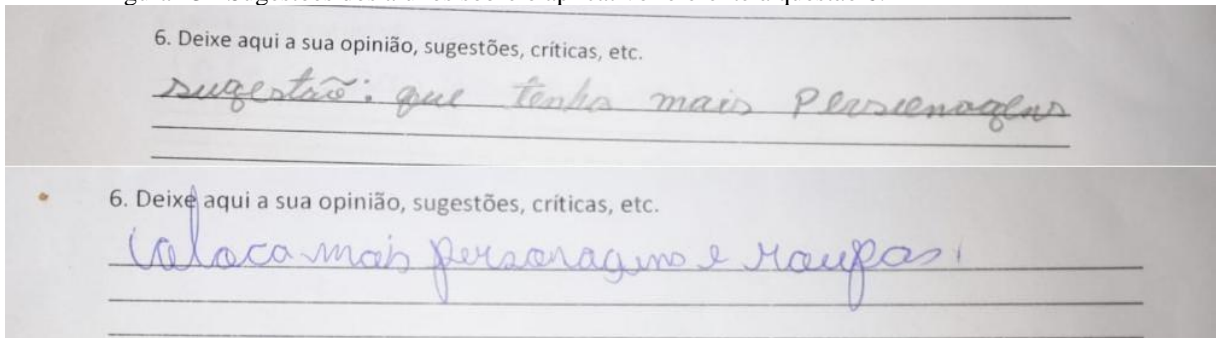 6. Deixe aqui a sua opinião, sugestões, críticas, etc.
sugestão: que tenha mais Personagens
6. Deixe aqui a sua opinião, sugestões, críticas, etc.
Coloca mais personagens e roupas.